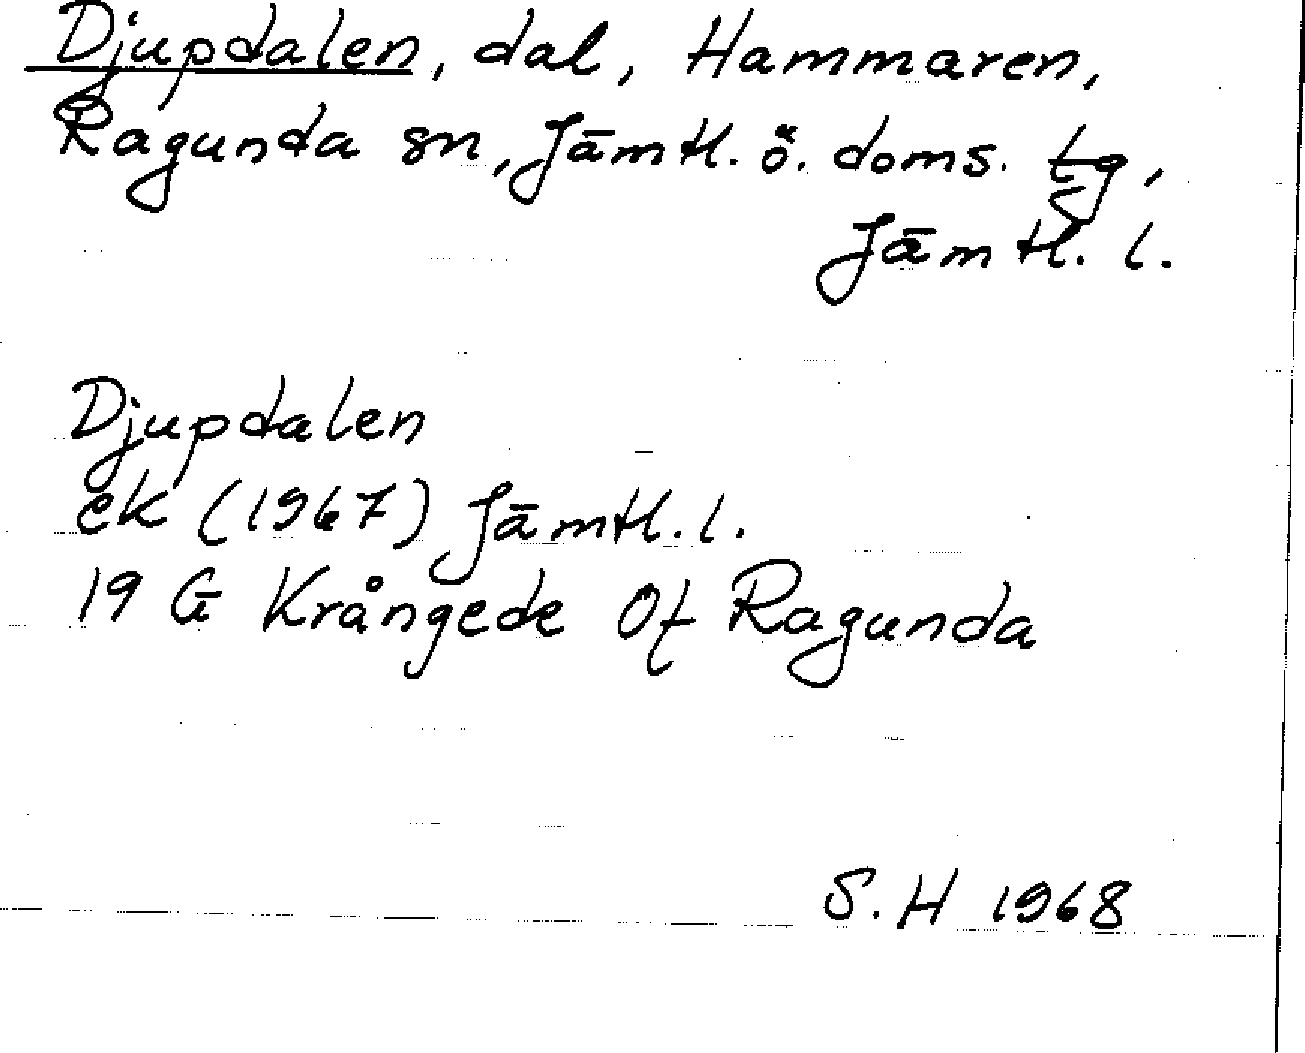 Djupdalen, dal, Hammaren,
Ragunda sn, Jämtl. ö. doms. tg,
Jämtl. l.
Djupdalen
ek (1967) Jämtl. l.
19 G Krångede Of Ragunda
S. H 1968